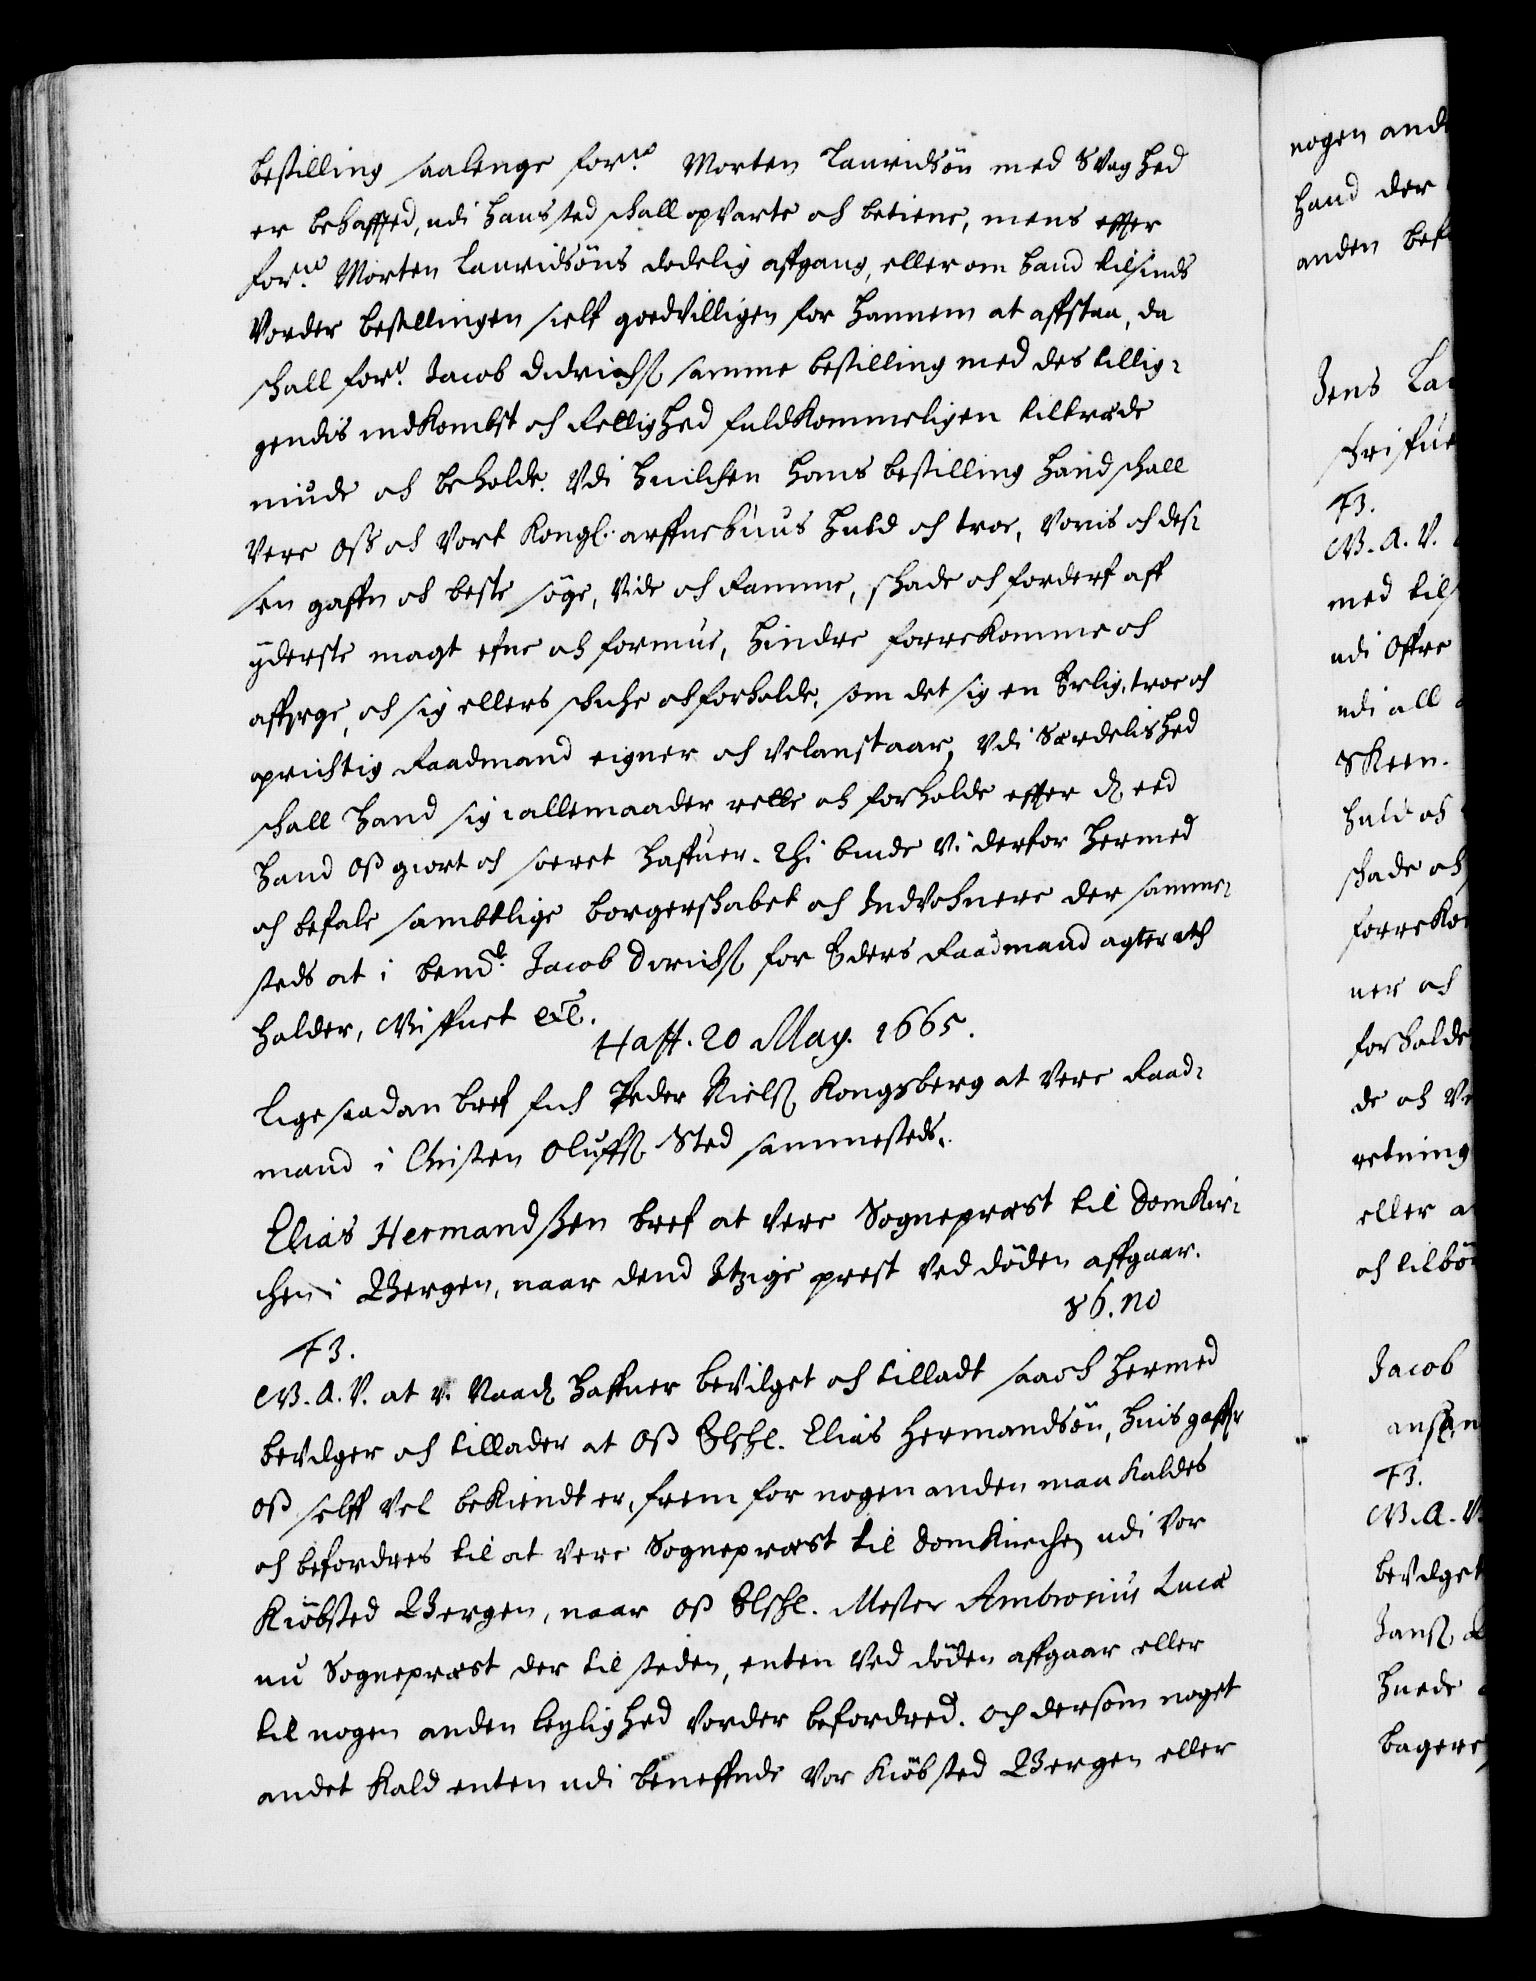 bestilling saalenge for.ne Morten Lauridsøn med Svaghed
er behaffted, udi hans sted schall opvarte och betiene, mens effter
for.ne Morten Lauridsøns dødelig affgang, eller om hand tilsinds
Vorder bestillingen sielf goedvilligen for hannem at affstaa, da
schall for.ne Jacob Didrichs samme bestilling med des tillig-
gendis indkombst och Rettighed fuldkommeligen tiltræde
niude och beholde. Udi huilchen hans bestilling hand schall
Vere Oss och Vort Kongl. arffuehuus huld och troe, Voris och des-
sen gaffn och beste søge, Vide och Ramme, schade och forderf aff
yderste magt efne och formue, hindre forrekomme och
affverge, och sig ellers schiche och forholde, som det sig en Erlig, troe och
oprichtig Raadmand eigner och velanstaar, Udi Særdelished
schall hand sig i alle maader rette och forholde effter d eed
hand Oss giort och soeret haffuer. Thi biude Vi derfor hermed
och befale sambtlige borgerschabet och Indvohnere der samme-
steds at i bemd.te Jacob Dirichs for Eders Raadmand agter och
holder, Giffuet etc.
Haff. 20 May. 1665.
Lige saadan bref fich Peder Niels Kongsberg at Vere Raad-
mand i Christen Oluffs Sted sammesteds.
Elias Hermandssen bref at Vere Sognepræst til Domkir-
chen i Bergen, naar dend Itzige prest Ved døden affgaar.
86. no
F3.
G. A. V. at v. Naad haffuer bevilget och tilladt saa och hermed
bevilger och tillader at Oss Elschl. Elias Hermandsøn, huis gaffr
Oss selff Vel bekiendt er, frem for nogen anden maa kaldes
och befordres til at Vere Sognepræst til Domkirchen udi Vor
Kiøbsted Bergen, naar Oss Elschl. Mester Ambrosius Lucæ
nu Sognepræst der til steden, enten Ved døden affgaar eller
til nogen anden leylighed Vorder befordred. Och dersom noget
andet Kald enten udi beneffnde Vor Kiøbsted Bergen eller
nogen and
hand der
anden bef
Jens La
F3.
G. A. V.
med til
udi Offre
udi all
Skeen.
huld och
schade och
forreko
ner och
forholde
de och Ve
retning
eller a
och tilbø
Jacob
F3.
G. A. V.
bevilget
Jans
huede
bagere